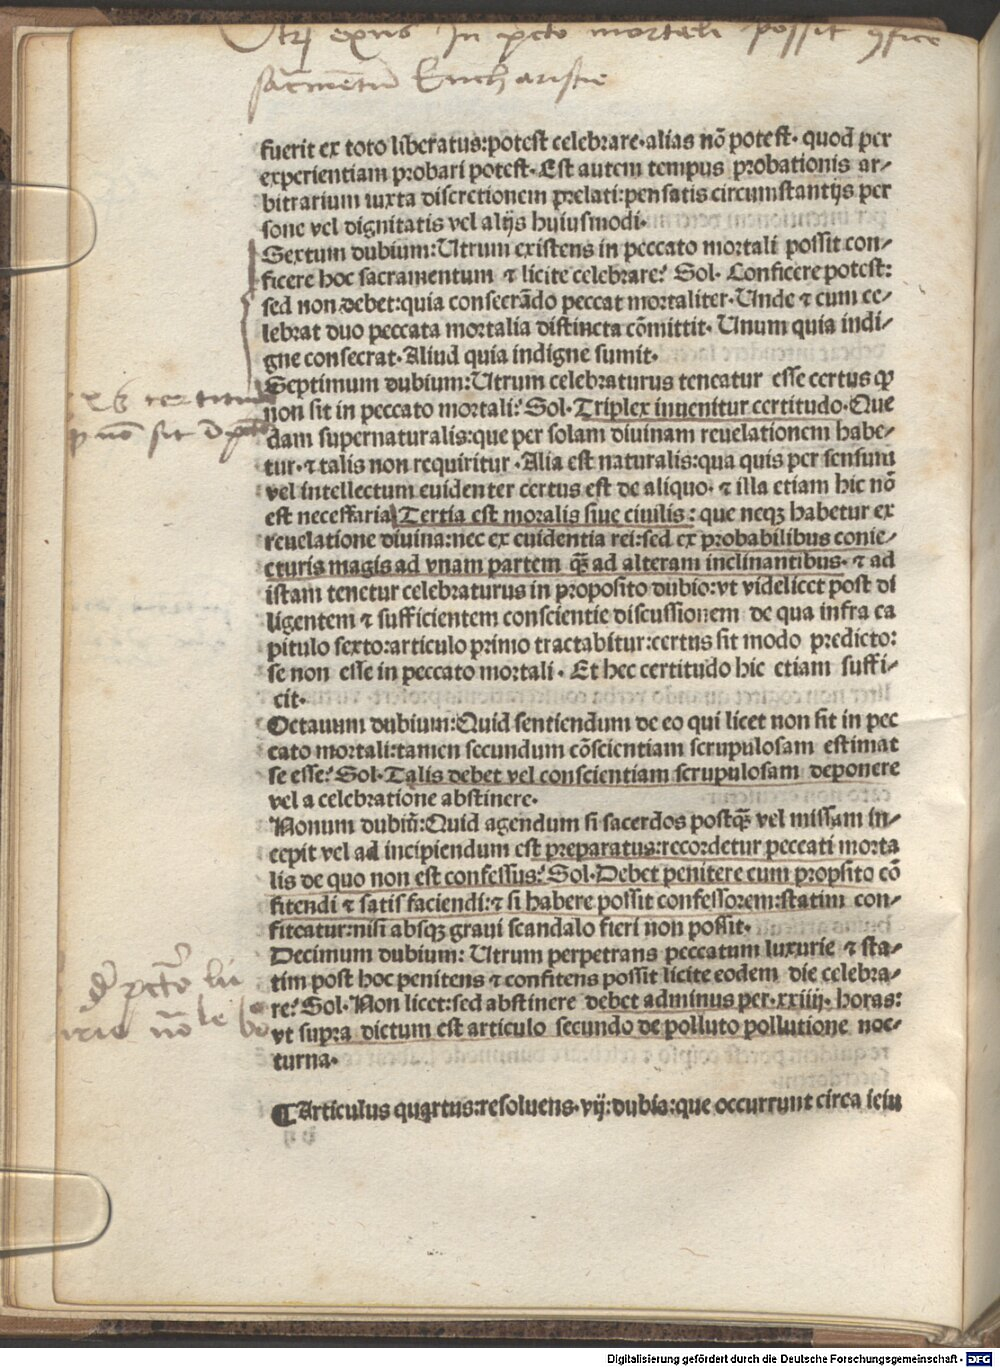 Utrum exñs In pcto mortali possit ꝯfice
sacmentũ Eucharistie
fuerit ex toto liberatus:potest celebrare·alias nõ potest· quod per
experientiam probari potest· Est autem tempus probationis ar⸗
bitrarium iuxta discretionem prelati:pensatis circumstantijs per
sone vel dignitatis vel alijs huiusmodi·
Sextum dubium:Utrum existens in peccato mortali possit con⸗
ficere hoc sacramentum ⁊ licite celebrare? Sol· Conficere potest:
sed non debet:quia consecrãdo peccat mortaliter·Unde ⁊ cum ce⸗
lebrat duo peccata mortalia distincta cõmittit· Unum quia indi⸗
gne consecrat·Aliud quia indigne sumit·
Septimum dubium:Utrum celebraturus teneatur esse certus ꝙ
non sit in peccato mortali? Sol·Triplex inuenitur certitudo·Que
dam supernaturalis:que per solam diuinam reuelationem habe⸗
tur·⁊ talis non requiritur·Alia est naturalis:qua quis per sensum
vel intellectum euidenter certus est de aliquo· ⁊ illa etiam hic nõ
est necessaria Tertia est moralis siue ciuilis: que neqꝫ habetur ex
reuelatione diuina:nec ex euidentia rei:sed ex probabilibus conie⸗
cturis magis ad vnam partem ꝗ̃ ad alteram inclinantibus· ⁊ ad
istam tenetur celebraturus in proposito dubio:vt videlicet post di
ligentem ⁊ sufficientem conscientie discussionem de qua infra ca
pitulo sexto:articulo primo tractabitur:certus sit modo predicto:
se non esse in peccato mortali · Et hec certitudo hic etiam suffi⸗
cit·
Octauum dubium:Quid sentiendum de eo qui licet non sit in pec
cato mortali:tamen secundum cõscientiam scrupulosam estimat
se esse? Sol·Talis debet vel conscientiam scrupulosam deponere
vel a celebratione abstinere·
Nonum dubiũ:Quid agendum si sacerdos postꝗ̃ vel missam in⸗
cepit vel ad incipiendum est preparatus:recordetur peccati morta
lis de quo non est confessus? Sol·Debet penitere cum propsito cõ
fitendi ⁊ satisfaciendi:⁊ si habere possit confessorem:statim con⸗
fiteatur:nisi absqꝫ graui scandalo fieri non possit·
Decimum dubium: Utrum perpetrans peccatum luxurie ⁊ sta⸗
tim post hoc penitens ⁊ confitens possit licite eodem die celebra⸗
re? Sol·Non licet:sed abstinere debet adminus per·xxiiij· horas:
vt supra dictum est articulo secundo de polluto pollutione noc⸗
turna·
¶Articulus quartus:resoluens·vij:dubia:que occurrunt circa ieiu
certitu
nõ sit
pcto lu
Digitalisierung gefördert durch die Deutsche Forschungsgemeinschaft - DFG